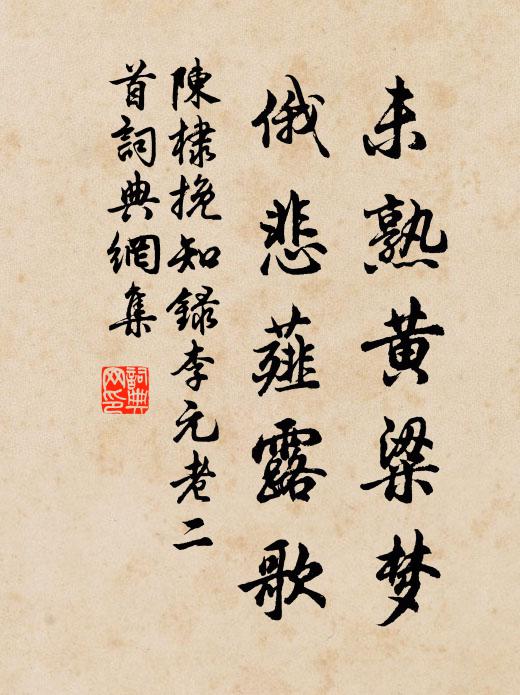 未熟黄粱梦
俄悲薤露歌
陳棣挽知録李元老二
首詞典網集
詞典網印